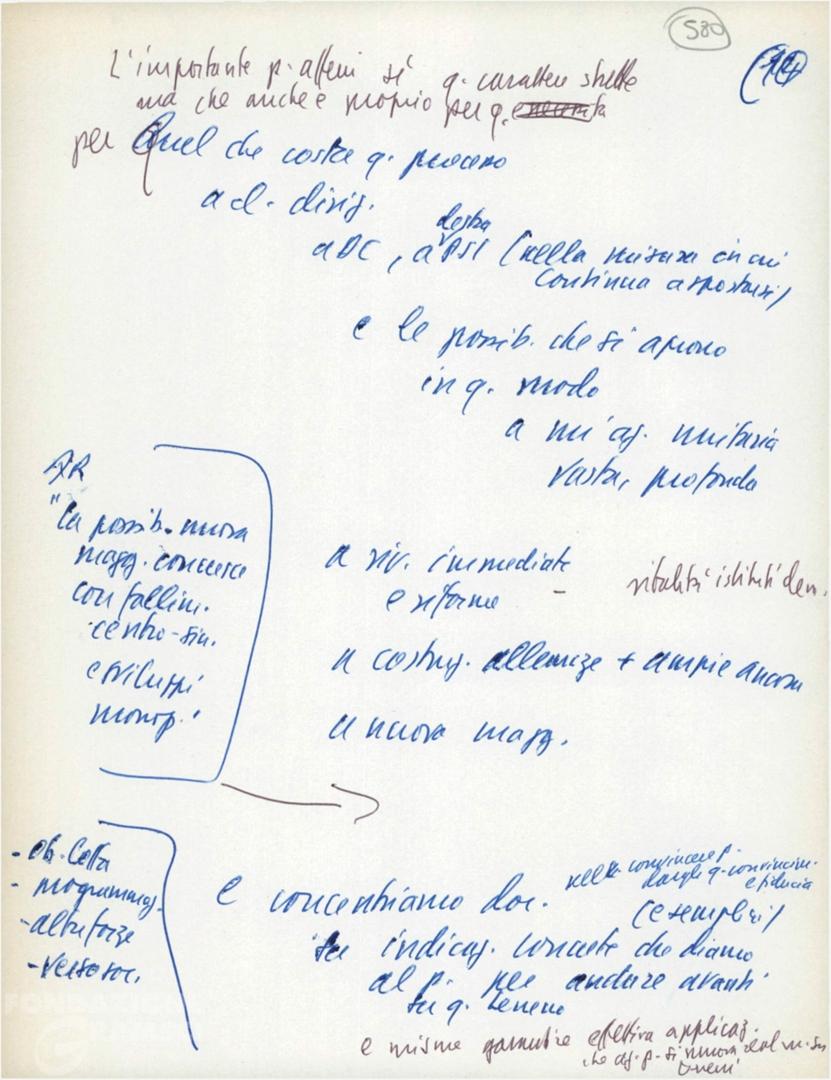 580
L'importante p. afferri sì q. carattere
ma che anche e proprio per q.
per Quel che costa q. processo
a cl. dirig.
a DC, a destra PSI (nella misura in cui
continua a spostarsi)
e le possib. che si aprono
in q. modo
a un'az. unitaria
vasta, profonda
"la possib. nuova
magg. concreta
con fallim.
centro-sin.
e sviluppi
monop."
a riv. immediate
e riforme - vitalità istituti dem.
a costruz. alleanze + ampie ancora
a nuova magg.
- ob. lotta
- programmaz.
- altre forze
- verso soc.
e concentriamo doc. nel convincere p.
dargli q. convincim.
e fiducia
(esempli)
su indicaz. concrete che diamo
al p. per andare avanti
su q. terreno
e misure garantire effettiva applicaz.
che az. p. si muova
terreni